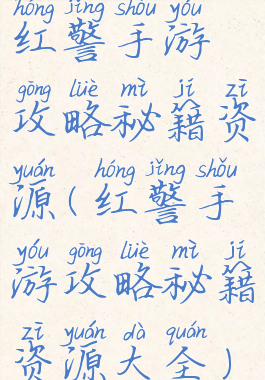 hóng jǐng shǒu yóu
红警手游
gōng lüè mì jí zī
攻略秘籍资
yuán hóng jǐng shǒu
源（红警手
yóu gōng lüè mì jí
游攻略秘籍
zī yuán dà quán
资源大全）